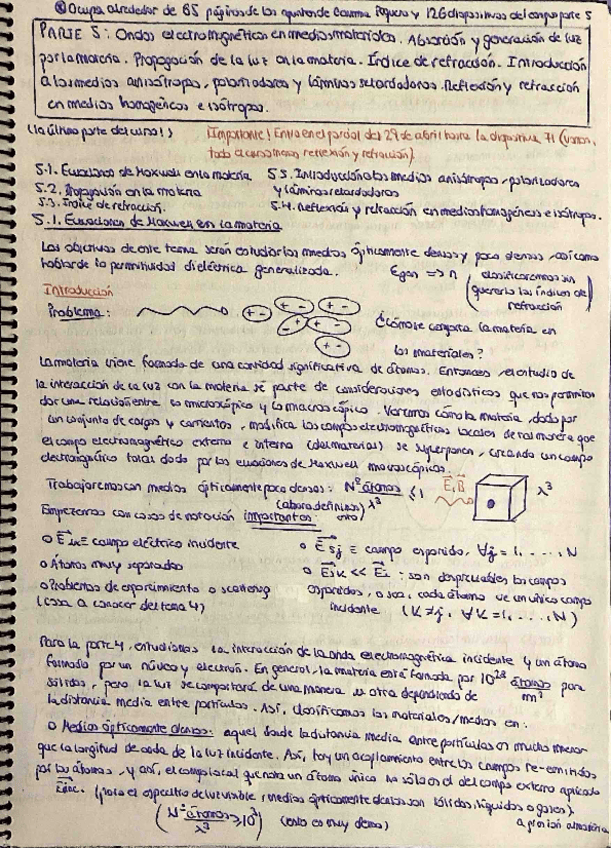 Ocupa alrededor de 65 páginas de los apuntes de Gamma Piquero y 126 diapositivas del campo parte 5
PARTE 5: Ondas electromagnéticas en medios materiales. Absorción y generación de luz
por la materia. Propagación de la luz en la materia. Índice de refracción. Introducción
a los medios anisótropos, polarizadores y láminas retardadoras. Reflexión y refracción
en medios homogéneos e isótropos.
(la última parte del curso!)
¡Importante! Entra en el parcial del 29 de abril hasta la diapositiva 71 (vamos,
todo el curso menos reflexión y refracción).
5.1. Ecuaciones de Maxwell en la materia
5.3. Introducción a los medios anisótropos, polarizadores
5.2. Propagación en la materia
y láminas retardadoras
5.3. Índice de refracción.
5.4. Reflexión y refracción en medios homogéneos e isótropos.
5.1. Ecuaciones de Maxwell en la materia
Los objetivos de este tema serán estudiar los medios ópticamente densos y poco densos, así como
hablar de la permitividad dieléctrica generalizada. Egen => n
(clasificaremos sin
quererlo los índices de
refracción)
Introducción
Problema:
+ - + - + - + - + - + -
¿Cómo se comporta la materia en
los materiales?
La materia viene formada de una cantidad significativa de átomos. Entonces, el estudio de
la interacción de la luz con la materia se parte de consideraciones estadísticas que nos permiten
dar una relación entre lo microscópico y lo macroscópico. Veremos cómo la materia, dada por
un conjunto de cargas y corrientes, modifica los campos electromagnéticos locales de tal manera que
el campo electromagnético externo e interno (del material) se superponen, creando un campo
electromagnético total dado por las ecuaciones de Maxwell macroscópicas.
Trabajaremos con medios ópticamente poco densos: Nº átomos/λ³ ≤ 1
E, B
λ³
(ahora definimos esto)
Empezaremos con cosas de notación importantes:
o E inc ≡ campo eléctrico incidente
o E sj ≡ campo esparcido, ∀j = 1, ..., N
o Átomos muy separados
o Ejk << Ei : son despreciables los campos
o Problemas de esparcimiento o scattering
esparcidos, o sea, cada átomo ve un único campo
(cosa a conocer del tema 4)
incidente (k ≠ j, ∀k = 1, ..., N)
Para la parte 4, estudiamos la interacción de la onda electromagnética incidente y un átomo
formado por un núcleo y electrón. En general, la materia está formada por 10²⁸ átomos/m³ para
sólidos, pero la luz se comportará de una manera u otra dependiendo de
la distancia media entre partículas. Así, clasificamos los materiales/medios en:
o Medios ópticamente densos: aquel donde la distancia media entre partículas es mucho menor
que la longitud de onda de la luz incidente. Así, hay un acoplamiento entre los campos re-emitidos
por los átomos, y así, el campo local que nota un átomo único no sólo es el del campo externo aplicado
Einc. (para el espectro de luz visible, medios ópticamente densos son sólidos, líquidos o gases)
a presión atmosférica
(Nº átomos/λ³ ≥ 10³) (esto es muy denso)